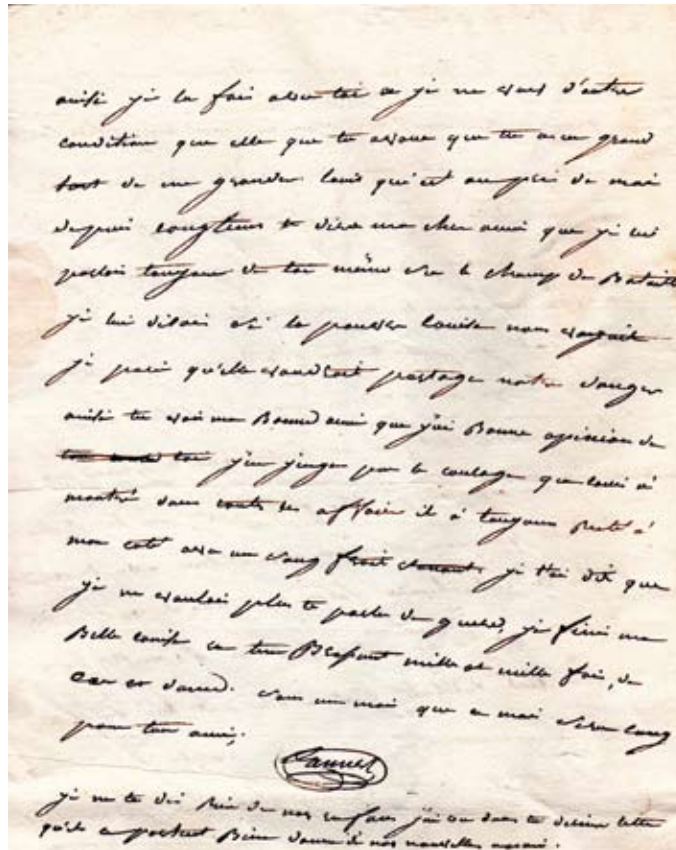 ainsi je la fais avec toi a je ne veux d'autre
condition que elle que tu avoue que tu a eu grand
tort de me gronder louis qu'est auprès de moi
depuis longtems te dira ma cher amie que je lui
parlois toujour de toi même sur le champ de Bataille
je lui disois si la pauvre louise nous voyait
je parie qu'elle voudroit partage notre danger
ainsi tu vois ma Bonne amie que j'ai Bonne opinion de
toi j'en juge par le courage que louis à
montré dans toute les affaire il à toujour resté à
mon coté avec un sang froit etonant je t'ai dit que
je ne voulois plus te parle de guere, je fini ma
Belle louise en mille et mille fois, de
cœur et d'ame. dans un mois que a moi sera long
pour ton ami,
Lannes
je ne te dis rien de nos enfans j'ai vu dans ta derniere lettre
qu'ils se portent Bien donne d nos nouvelles